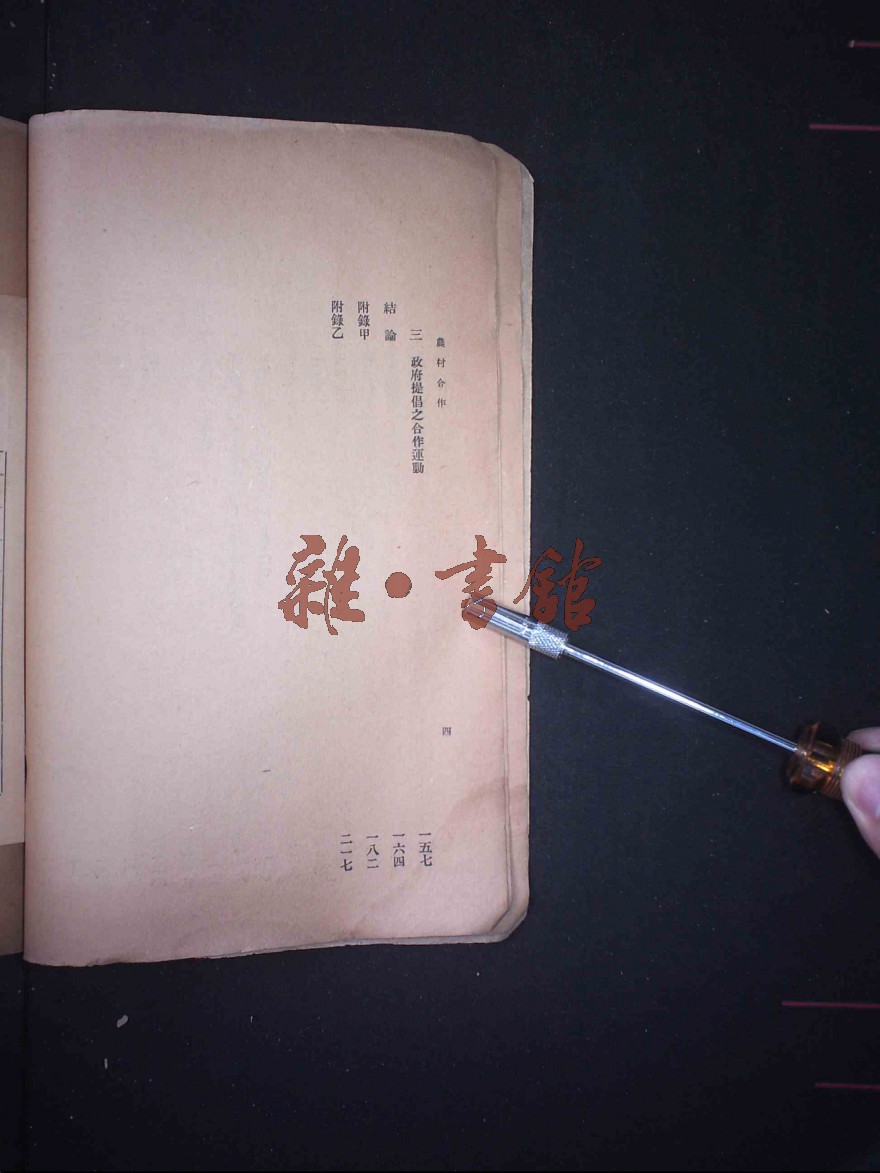 農村合作
四
三　政府提倡之合作運動
一五七
結論
一六四
附錄甲
一八二
附錄乙
二一七
雜·書館